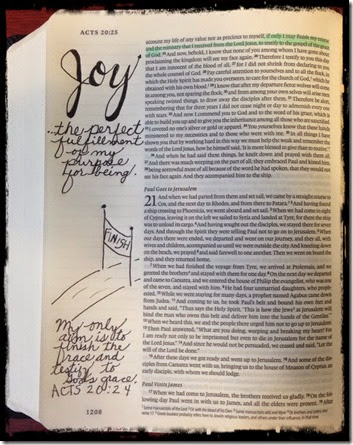 ACTS 20:25
Joy
...the perfect
fulfillment
of my
purpose
for being.
FINISH
My only
aim is to
finish the
race and
testify to
God's grace.
ACTS 20:24
1208
account my life of any value nor as precious to myself, if only I may finish my course
and the ministry that I received from the Lord Jesus, to testify to the gospel of the grace
of God. 25 And now, behold, I know that none of you among whom I have gone about
proclaiming the kingdom will see my face again. 26 Therefore I testify to you this day
that I am innocent of the blood of all, 27 for I did not shrink from declaring to you
the whole counsel of God. 28 Pay careful attention to yourselves and to all the flock, in
which the Holy Spirit has made you overseers, to care for the church of God, which he
obtained with his own blood. 29 I know that after my departure fierce wolves will come
in among you, not sparing the flock; 30 and from among your own selves will arise men
speaking twisted things, to draw away the disciples after them. 31 Therefore be alert,
remembering that for three years I did not cease night or day to admonish every one
with tears. 32 And now I commend you to God and to the word of his grace, which is
able to build you up and to give you the inheritance among all those who are sanctified.
33 I coveted no one's silver or gold or apparel. 34 You yourselves know that these hands
ministered to my necessities and to those who were with me. 35 In all things I have
shown you that by working hard in this way we must help the weak and remember the
words of the Lord Jesus, how he himself said, 'It is more blessed to give than to receive.'"
36 And when he had said these things, he knelt down and prayed with them all.
37 And there was much weeping on the part of all; they embraced Paul and kissed him,
38 being sorrowful most of all because of the word he had spoken, that they would not
see his face again. And they accompanied him to the ship.
Paul Goes to Jerusalem
21 And when we had parted from them and set sail, we came by a straight course to
Cos, and the next day to Rhodes, and from there to Patara. 2 And having found
a ship crossing to Phoenicia, we went aboard and set sail. 3 When we had come in sight
of Cyprus, leaving it on the left we sailed to Syria and landed at Tyre, for there the ship
was to unload its cargo. 4 And having sought out the disciples, we stayed there for seven
days. And through the Spirit they were telling Paul not to go on to Jerusalem. 5 When
our days there were ended, we departed and went on our journey, and they all, with
wives and children, accompanied us until we were outside the city. And kneeling down
on the beach, we prayed 6 and said farewell to one another. Then we went on board the
ship, and they returned home.
7 When we had finished the voyage from Tyre, we arrived at Ptolemais, and we
greeted the brothers and stayed with them for one day. 8 On the next day we departed
and came to Caesarea, and we entered the house of Philip the evangelist, who was one
of the seven, and stayed with him. 9 He had four unmarried daughters, who prophesied.
10 While we were staying for many days, a prophet named Agabus came down
from Judea. 11 And coming to us, he took Paul's belt and bound his own feet and
hands and said, "Thus says the Holy Spirit, 'This is how the Jews at Jerusalem will
bind the man who owns this belt and deliver him into the hands of the Gentiles.'"
12 When we heard this, we and the people there urged him not to go up to Jerusalem.
13 Then Paul answered, "What are you doing, weeping and breaking my heart? For
I am ready not only to be imprisoned but even to die in Jerusalem for the name of
the Lord Jesus." 14 And since he would not be persuaded, we ceased and said, "Let the
will of the Lord be done."
15 After these days we got ready and went up to Jerusalem. 16 And some of the disciples
from Caesarea went with us, bringing us to the house of Mnason of Cyprus, an
early disciple, with whom we should lodge.
Paul Visits James
17 When we had come to Jerusalem, the brothers received us gladly. 18 On the following
day Paul went in with us to James, and all the elders were present.